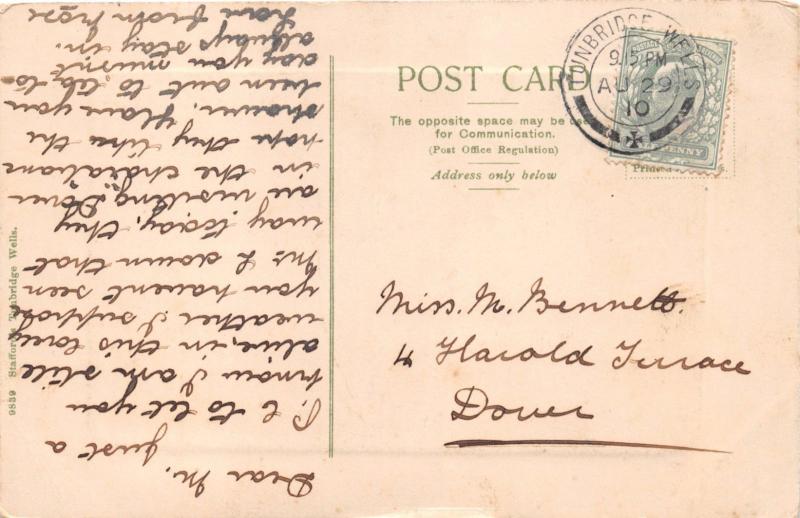 POST CARD
The opposite space may be used
for Communication.
(Post Office Regulation)
Address only below
TUNBRIDGE WELLS
9.15 PM
AU 29
10
POSTAGE
PENNY
Printed
Miss. M. Bennett.
4 Harold Terrace
Dover
9839 Stafford Tunbridge Wells.
Dear M. just a
P.C to let you
know I am still
alive, in this lovely
weather. I suppose
you havent seen
Mr L down that
way today, they
are visiting Dover
in the charabanc
hope they like the
shower. Have you
been out to tea to-
day you musn't
always stay in.
from